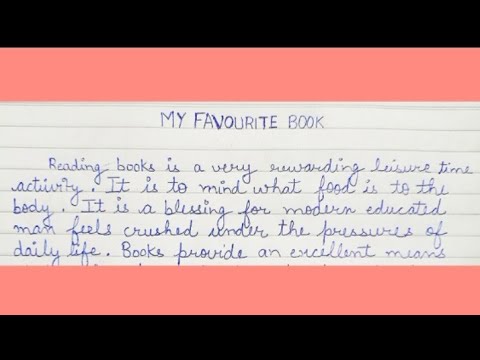 MY FAVOURITE BOOK
Reading books is a very rewarding leisure time
activity. It is to mind what food is to the
body. It is a blessing for modern educated
man feels crushed under the pressures of
daily life. Books provide an excellent means